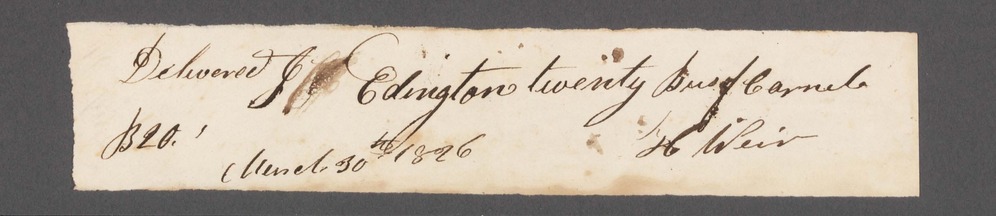 Delivered J Edington twenty Bus of Corn
B20.
March 30th 1826
H Weir